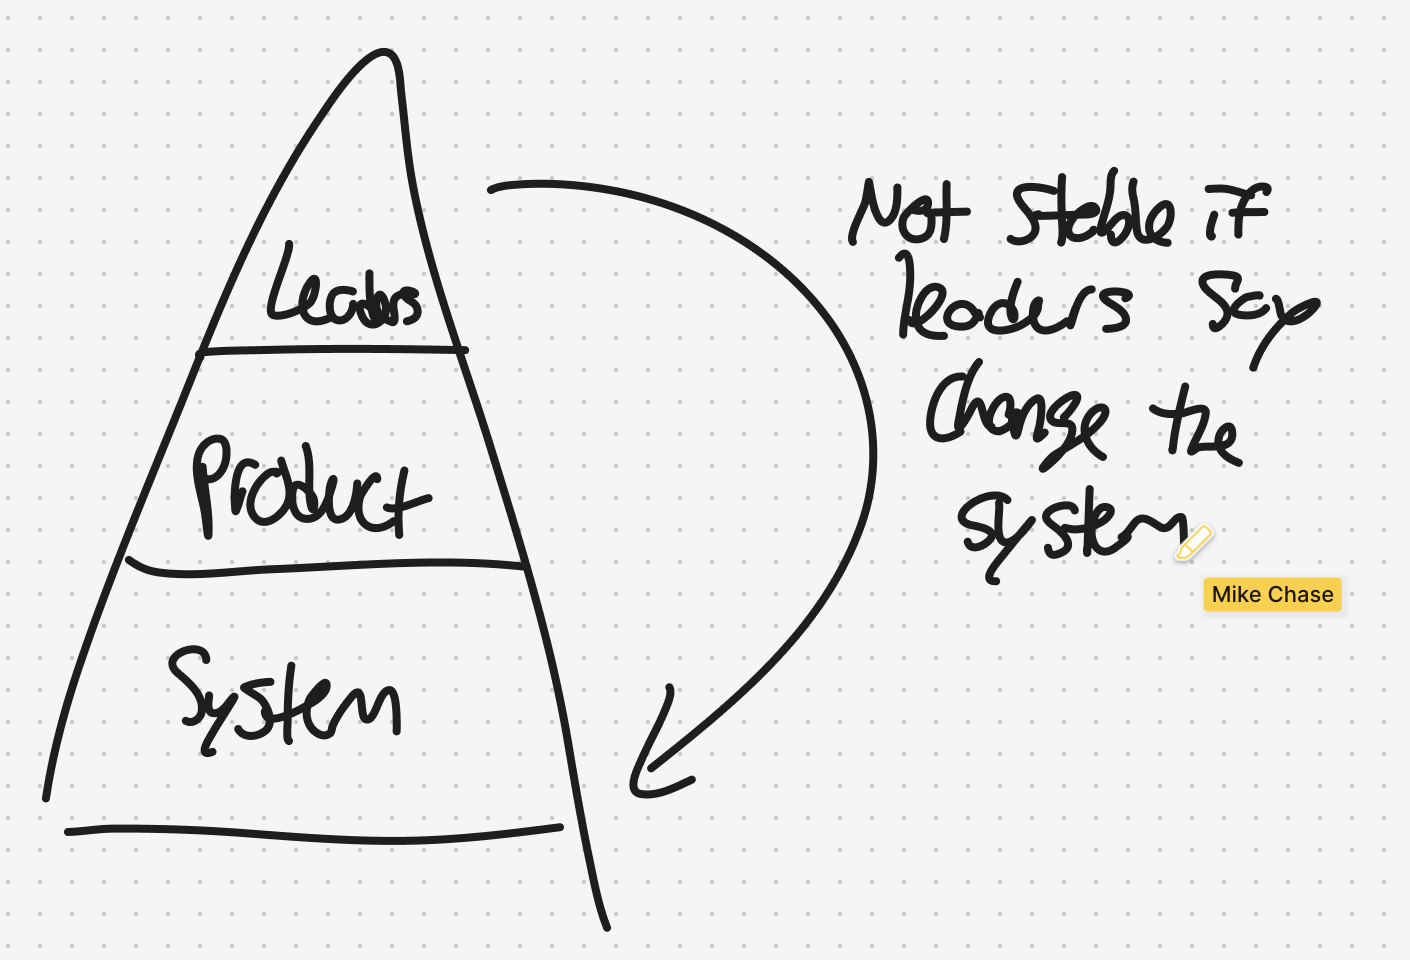 Leaders
Product
System
Not stable if
leaders say
change the
system
Mike Chase